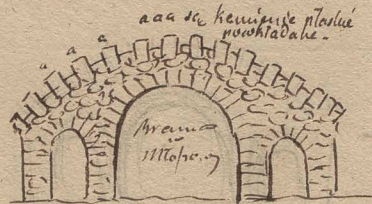 aaa są kamienie płaskie
powkładane.
a a a
Brama
w